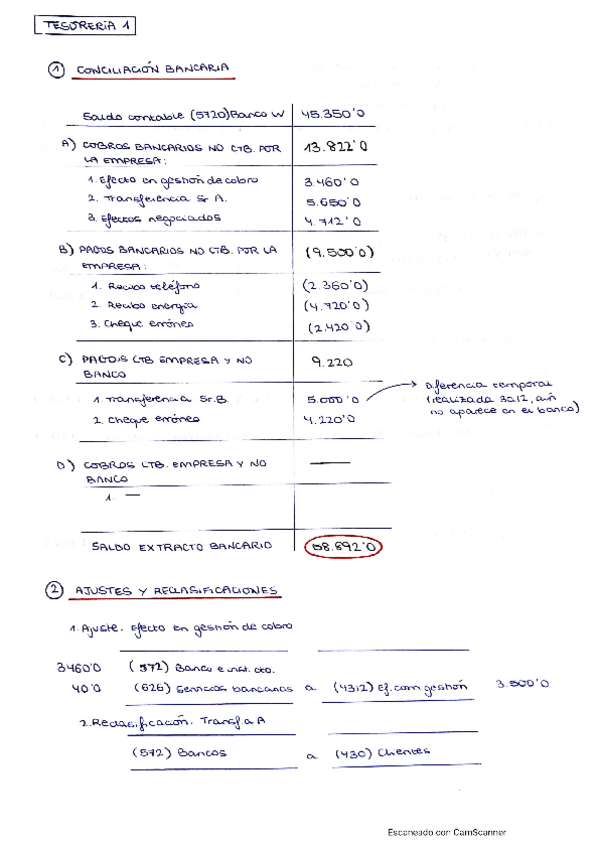 TESORERÍA 1
① CONCILIACIÓN BANCARIA
Saldo contable (5720) Banco W 45.350'0
A) COBROS BANCARIOS NO CTB. POR 13.822'0
LA EMPRESA:
1. Efecto en gestión de cobro 3.460'0
2. Transferencia Sr A. 5.650'0
3. Efectos negociados 4.712'0
B) PAGOS BANCARIOS NO CTB. POR LA (9.500'0)
EMPRESA:
1. Recibo teléfono (2.360'0)
2. Recibo energía (4.720'0)
3. Cheque erróneo (2.420'0)
C) PAGOS CTB EMPRESA Y NO 9.220
BANCO
1. Transferencia Sr. B. 5.000'0 → Diferencia temporal
(realizada 30.12, aún
no aparece en el banco)
2. Cheque erróneo 4.220'0
D) COBROS CTB. EMPRESA Y NO —
BANCO
1. —
SALDO EXTRACTO BANCARIO 58.892'0
② AJUSTES Y RECLASIFICACIONES
1. Ajuste. Efecto en gestión de cobro
3460'0 (572) Banco e inst. cto.
40'0 (626) Servicios bancarios a (4312) Ef. com gestión 3.500'0
2. Reclasificación. Transf a A
(572) Bancos a (430) Clientes
Escaneado con CamScanner